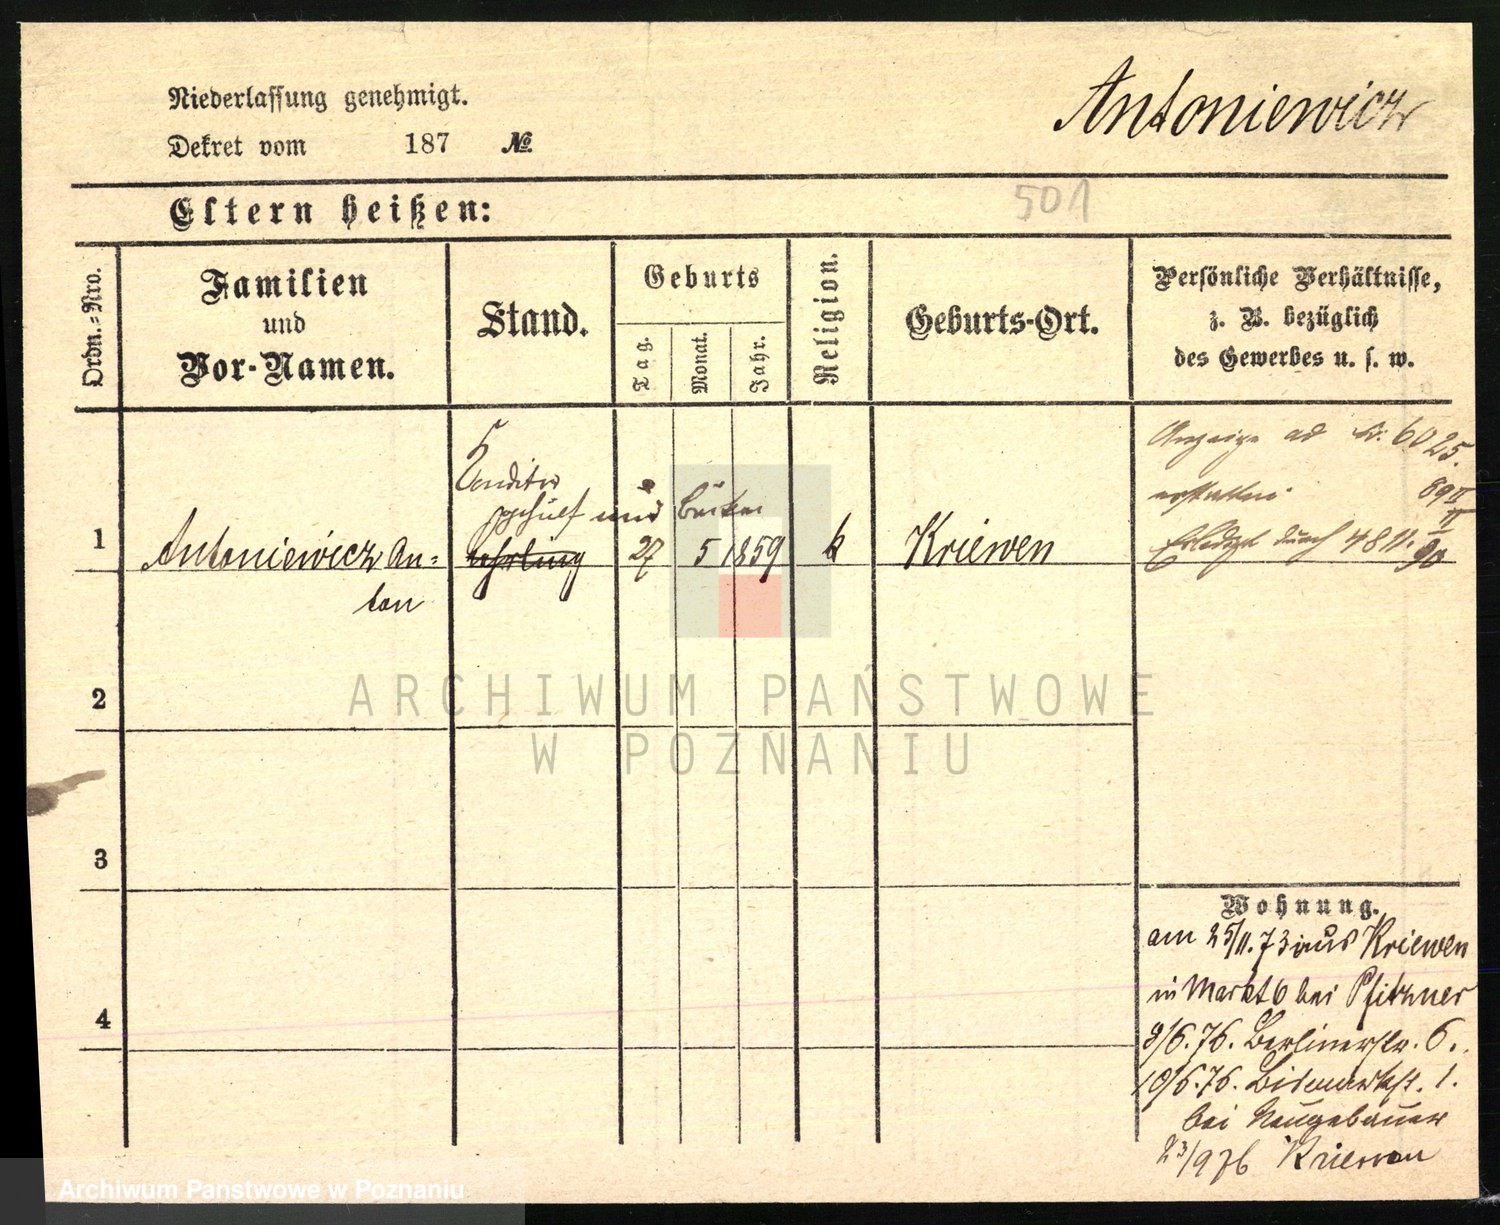 Niederlassung genehmigt.
Antoniewicz
Dekret vom 187 №
Eltern heißen:
501
Ordn.-Nro.
Familien
und
Vor-Namen.
Stand.
Geburts
Tag.
Monat.
Jahr.
Religion.
Geburts-Ort.
Persönliche Verhältnisse,
z. B. bezüglich
des Gewerbes u. s. w.
1
Antoniewicz An-
ton
Conditor
gehülf und
lehrling
27
5
1859
k
Kriewen
Anzeige ad 6025.
89
Erledigt durch 4811.
90
2
3
4
Wohnung.
am 25/11.73 aus Kriewen
in Markt 6 bei Pfitzner
9/6.76. Berlinerstr. 6.
10/6.76. Bismarkst. 1.
bei Neugebauer
23/9 76 Kriewen
ARCHIWUM PAŃSTWOWE
W POZNANIU
Archiwum Państwowe w Poznaniu